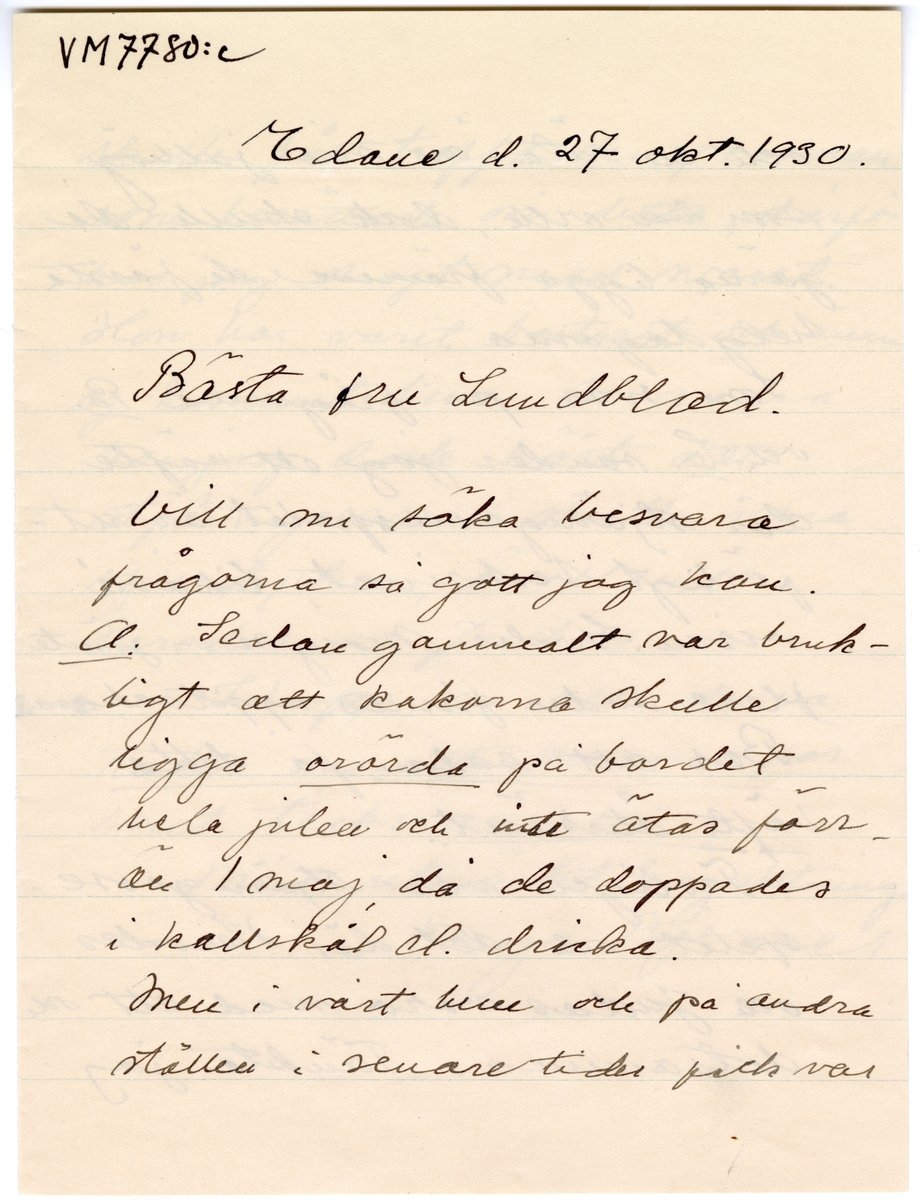 VM7780:c
Edane d. 27 okt. 1930.
Bästa fru Lundblad.
Vill nu söka besvara
frågorna så gott jag kan.
A. Sedan gammalt var bruk-
ligt att kakorna skulle
ligga orörda på bordet
hela julen och inte ätas förr-
än 1 maj, då de doppades
i kallskål el. dricka.
Men i vårt hem och på andra
ställen i senare tider fick var